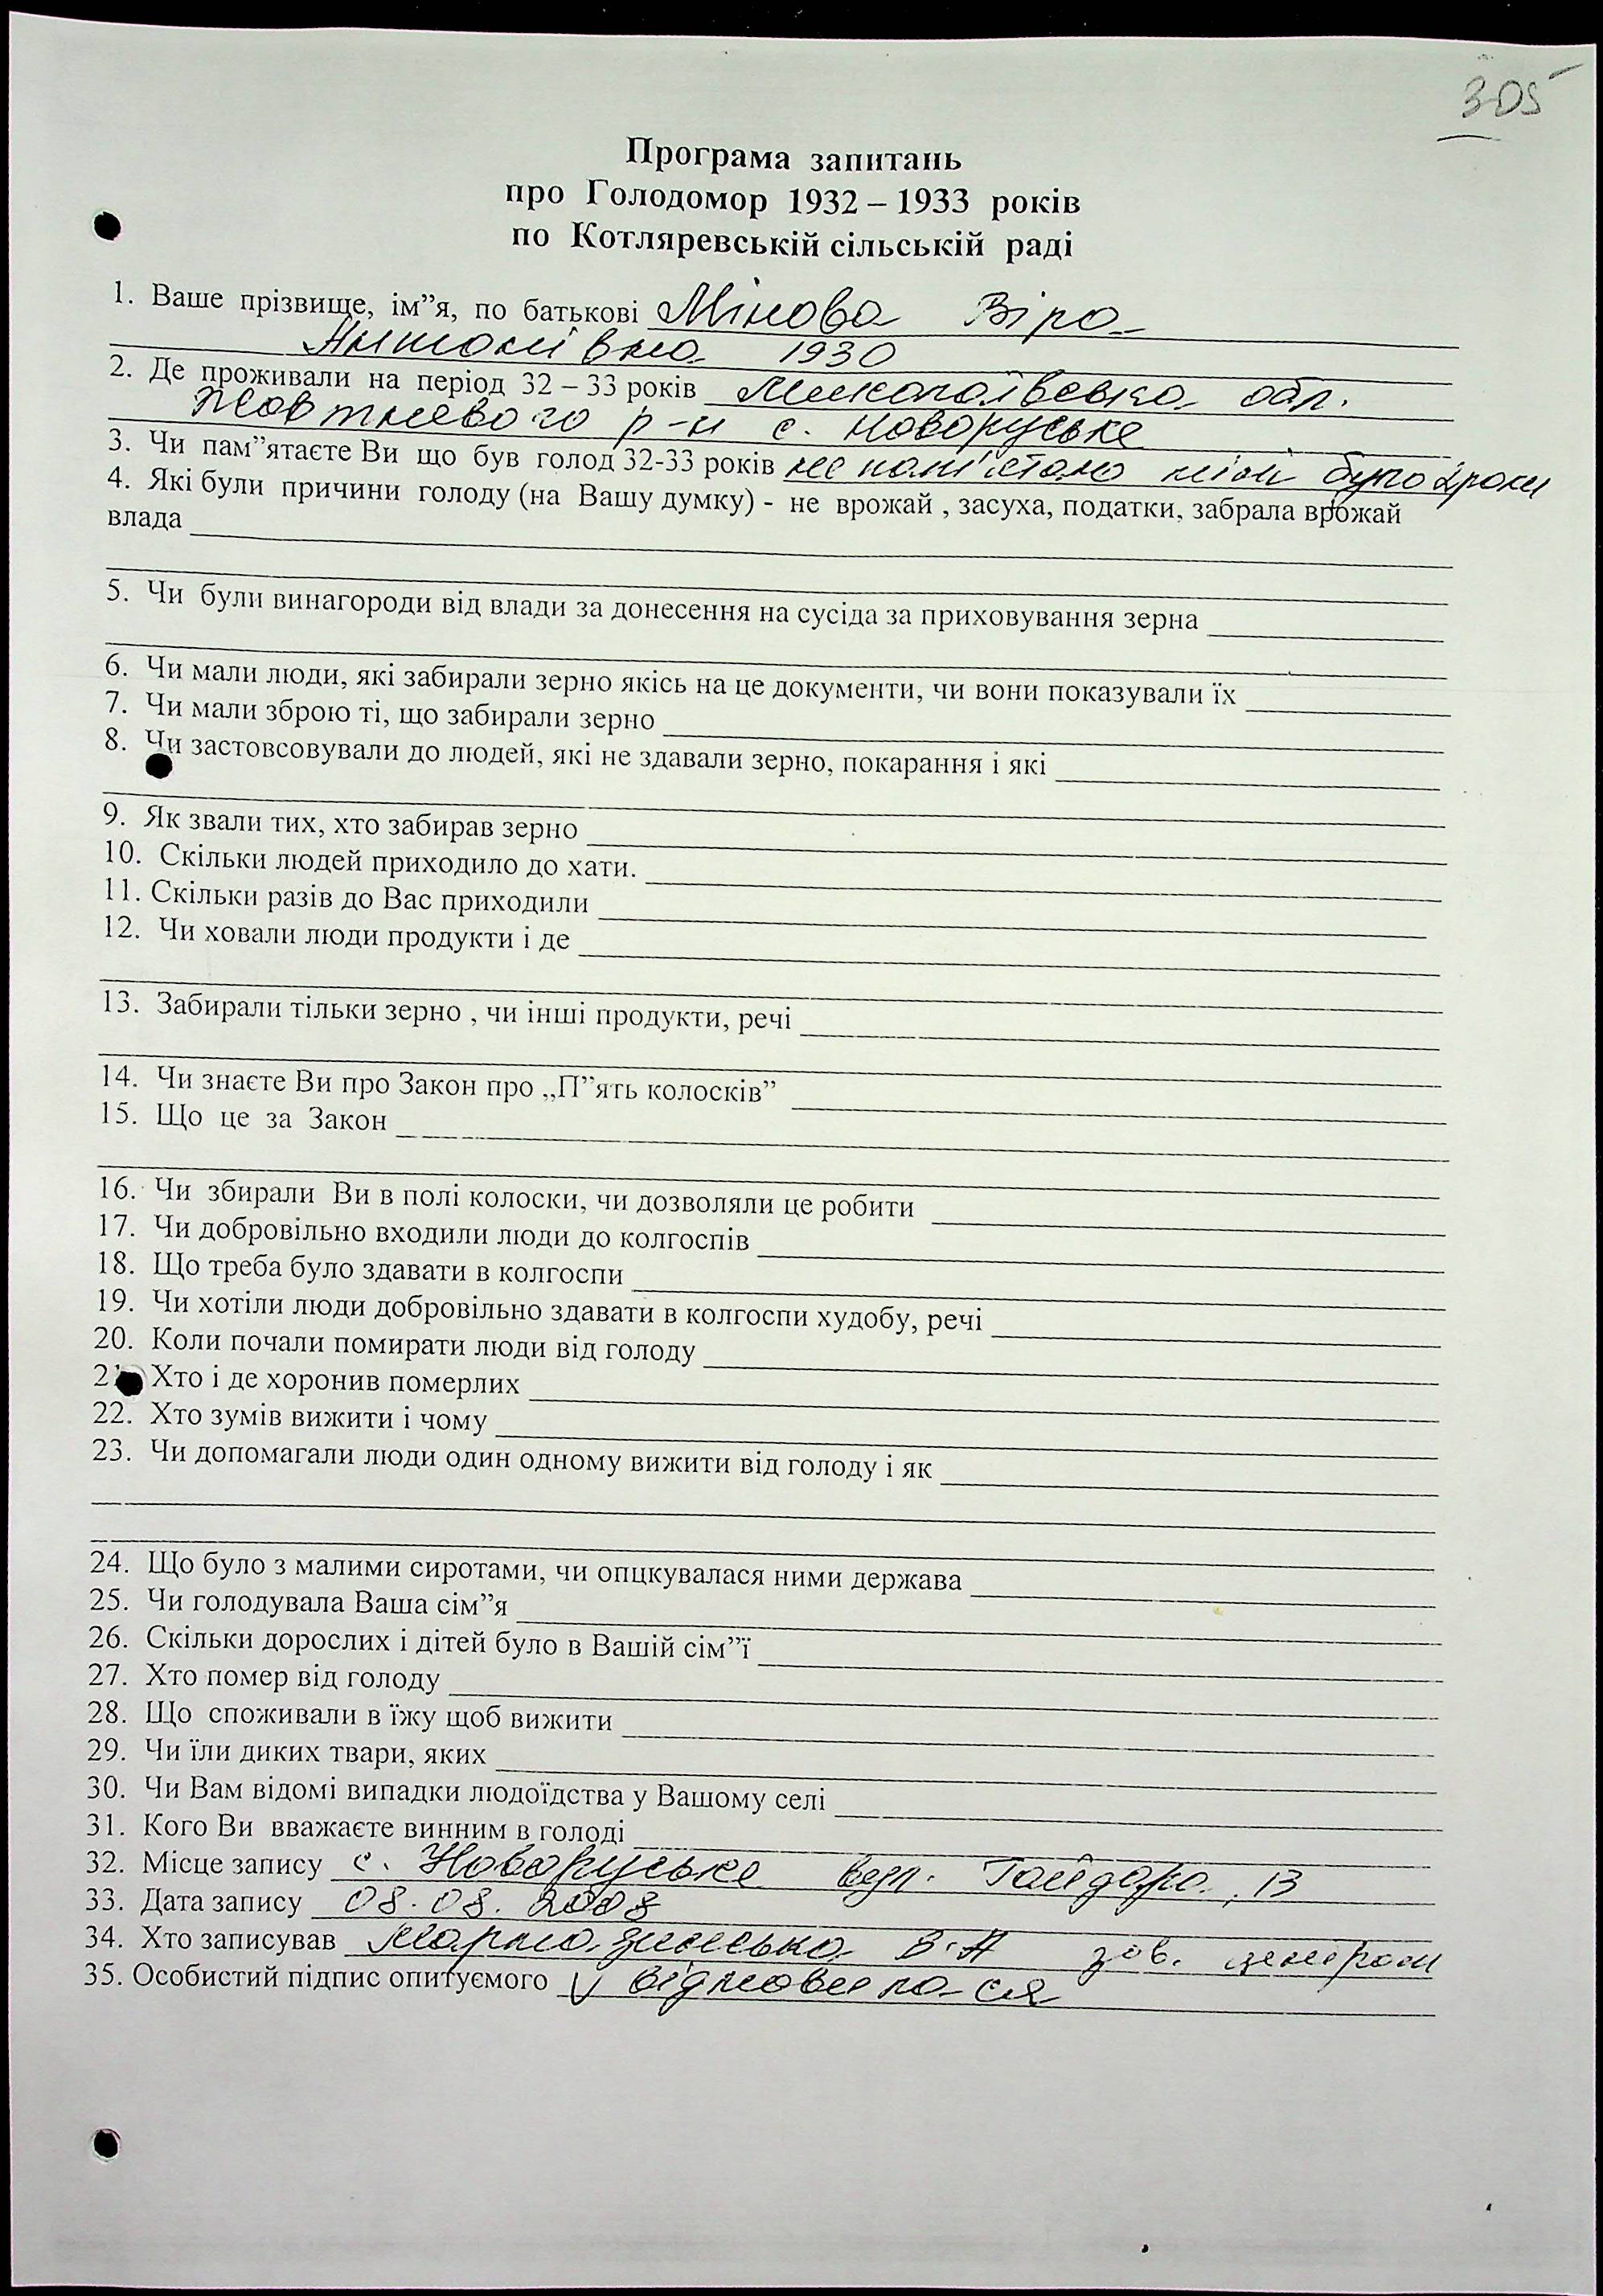 305
Програма запитань
про Голодомор 1932 – 1933 років
по Котляревській сільській раді
1. Ваше прізвище, ім”я, по батькові Мінова Віра
Антонівна 1930
2. Де проживали на період 32 – 33 років Миколаївська обл.
Жовтневого р-н с. Новоруське
3. Чи пам”ятаєте Ви що був голод 32-33 років не пам'ятаю мені було 2 роки
4. Які були причини голоду (на Вашу думку) - не врожай , засуха, податки, забрала врожай
влада
5. Чи були винагороди від влади за донесення на сусіда за приховування зерна
6. Чи мали люди, які забирали зерно якісь на це документи, чи вони показували їх
7. Чи мали зброю ті, що забирали зерно
8. Чи застовсовували до людей, які не здавали зерно, покарання і які
9. Як звали тих, хто забирав зерно
10. Скільки людей приходило до хати.
11. Скільки разів до Вас приходили
12. Чи ховали люди продукти і де
13. Забирали тільки зерно , чи інші продукти, речі
14. Чи знаєте Ви про Закон про „П”ять колосків”
15. Що це за Закон
16. Чи збирали Ви в полі колоски, чи дозволяли це робити
17. Чи добровільно входили люди до колгоспів
18. Що треба було здавати в колгоспи
19. Чи хотіли люди добровільно здавати в колгоспи худобу, речі
20. Коли почали помирати люди від голоду
21. Хто і де хоронив померлих
22. Хто зумів вижити і чому
23. Чи допомагали люди один одному вижити від голоду і як
24. Що було з малими сиротами, чи опцкувалася ними держава
25. Чи голодувала Ваша сім”я
26. Скільки дорослих і дітей було в Вашій сім”ї
27. Хто помер від голоду
28. Що споживали в їжу щоб вижити
29. Чи їли диких твари, яких
30. Чи Вам відомі випадки людоїдства у Вашому селі
31. Кого Ви вважаєте винним в голоді
32. Місце запису с. Новоруське вул. Гайдара, 13
33. Дата запису 08.08.2008
34. Хто записував В.А зав. центром
35. Особистий підпис опитуємого V відмовилася